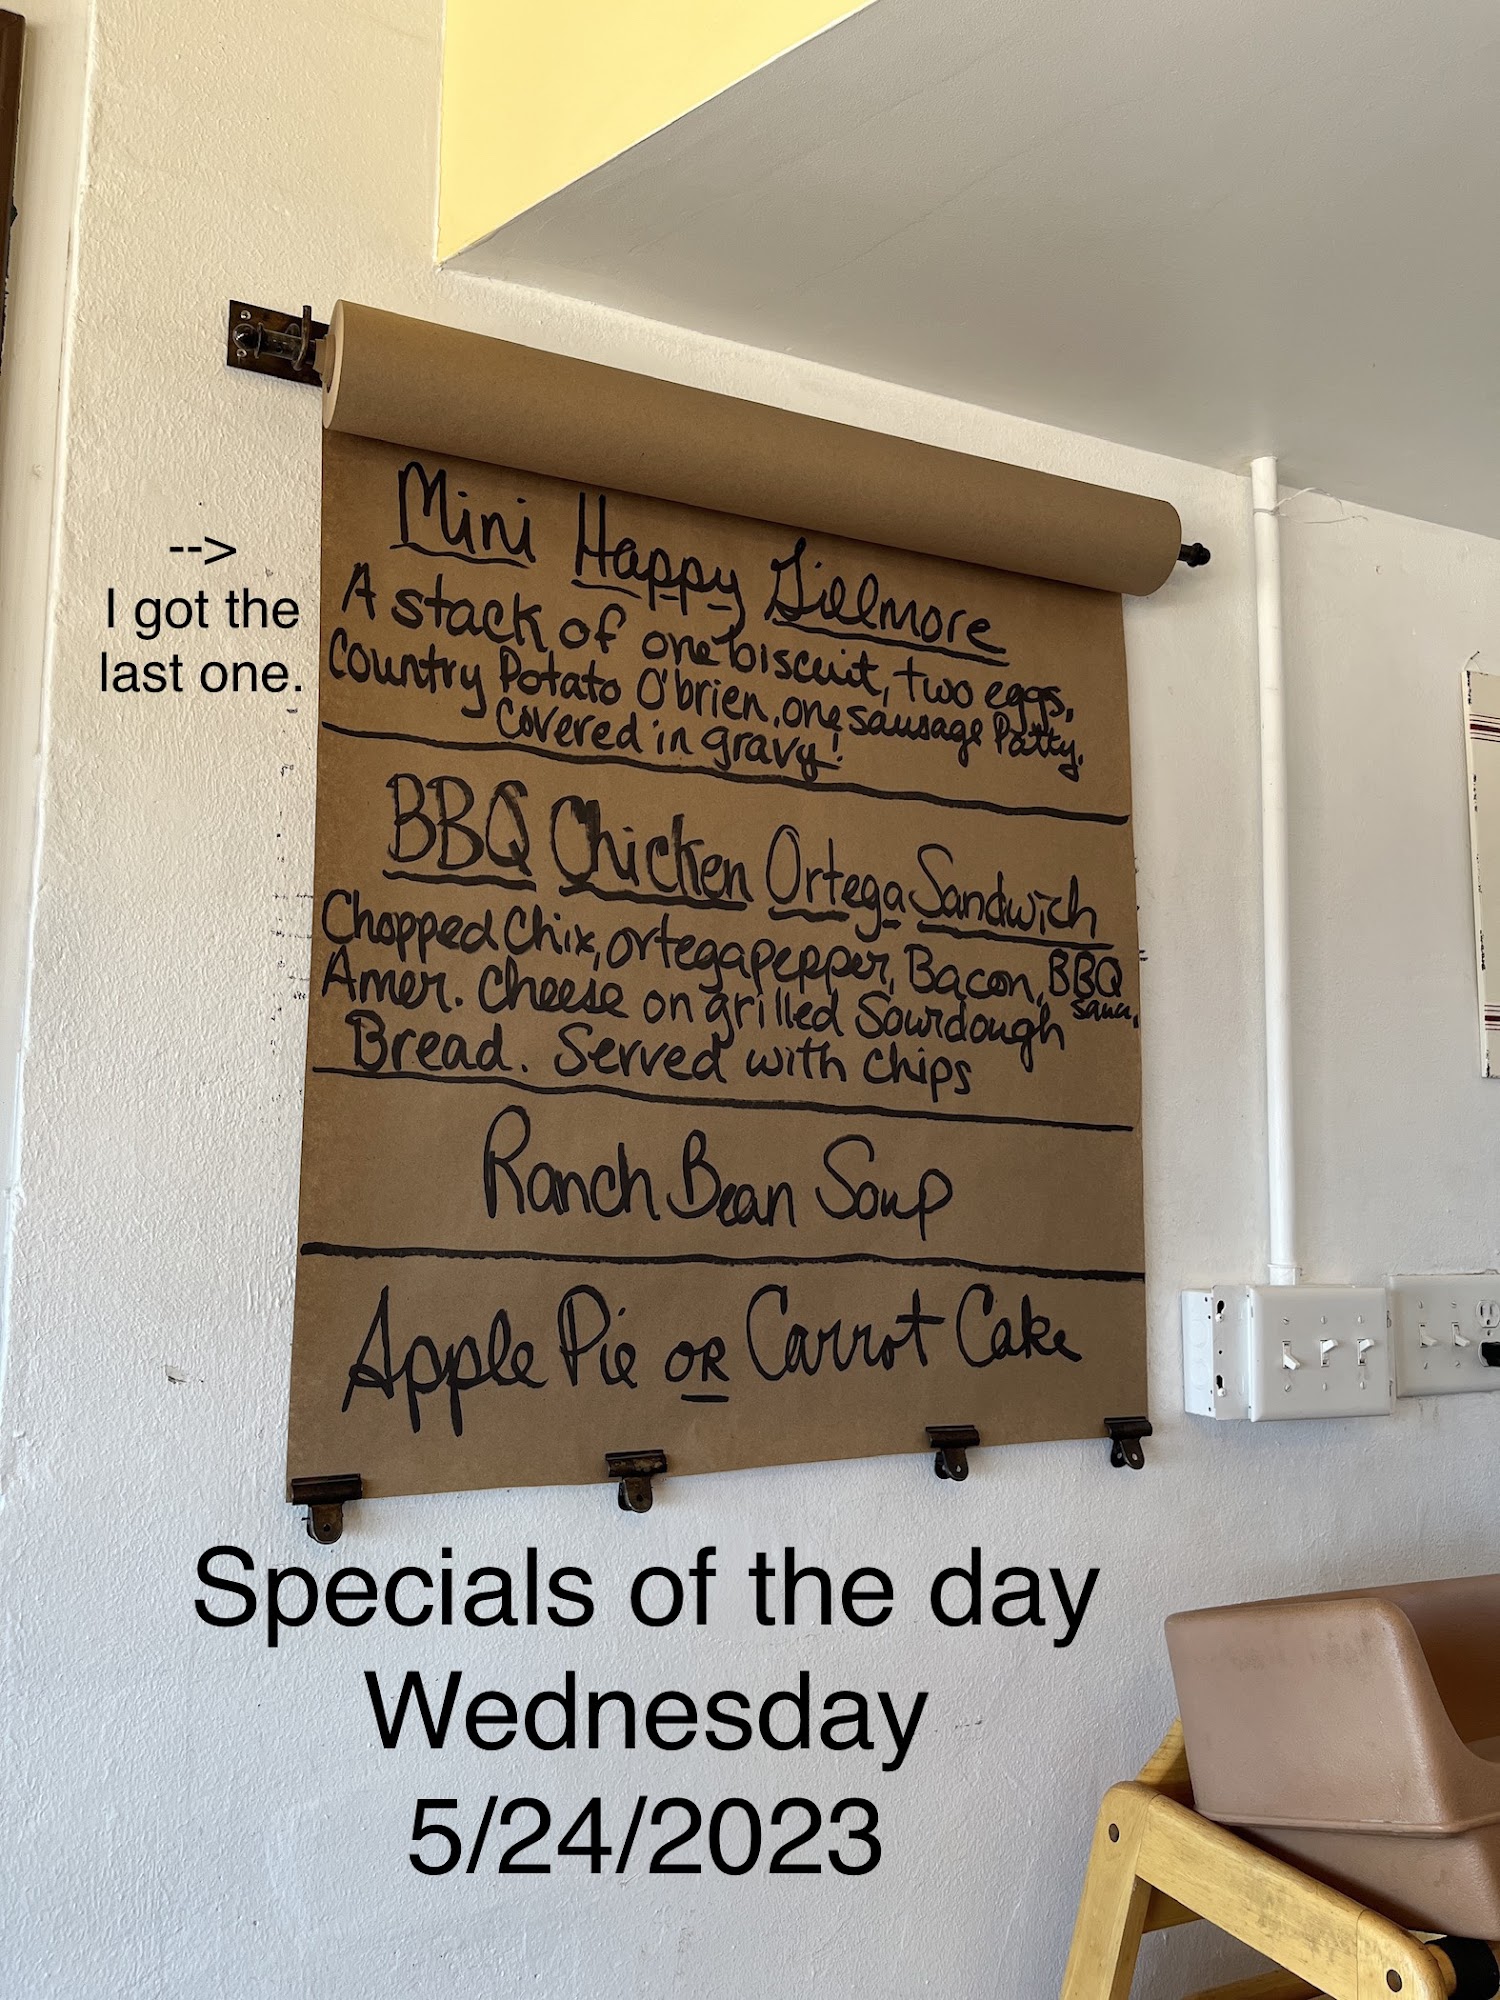 Mini Happy Gillmore
A stack of one biscuit, two eggs,
Country Potato O'brien, one sausage Patty,
covered in gravy!
-->
I got the
last one.
BBQ Chicken Ortega Sandwich
Chopped Chix, ortega pepper, Bacon, BBQ
sauce,
Amer. Cheese on grilled Sourdough
Bread. Served with chips
Ranch Bean Soup
Apple Pie OR Carrot Cake
Specials of the day
Wednesday
5/24/2023